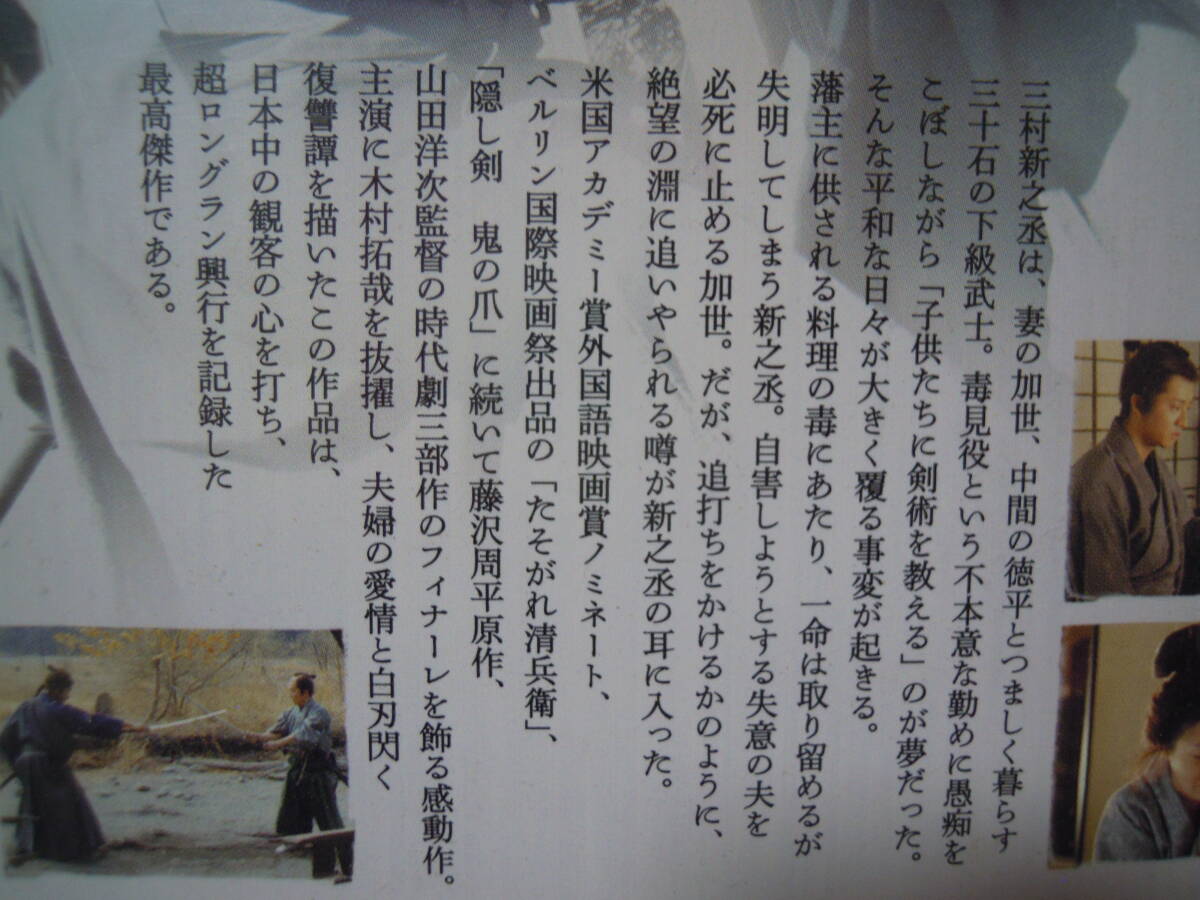 三村新之丞は、妻の加世、中間の徳平とつましく暮らす
三十石の下級武士。毒見役という不本意な勤めに愚痴を
こぼしながら「子供たちに剣術を教える」のが夢だった。
そんな平和な日々が大きく覆る事変が起きる。
藩主に供される料理の毒にあたり、一命は取り留めるが
失明してしまう新之丞。自害しようとする失意の夫を
必死に止める加世。だが、追打ちをかけるかのように、
絶望の淵に追いやられる噂が新之丞の耳に入った。
米国アカデミー賞外国語映画賞ノミネート、
ベルリン国際映画祭出品の「たそがれ清兵衛」、
「隠し剣　鬼の爪」に続いて藤沢周平原作、
山田洋次監督の時代劇三部作のフィナーレを飾る感動作。
主演に木村拓哉を抜擢し、夫婦の愛情と白刃閃く
復讐譚を描いたこの作品は、
日本中の観客の心を打ち、
超ロングラン興行を記録した
最高傑作である。